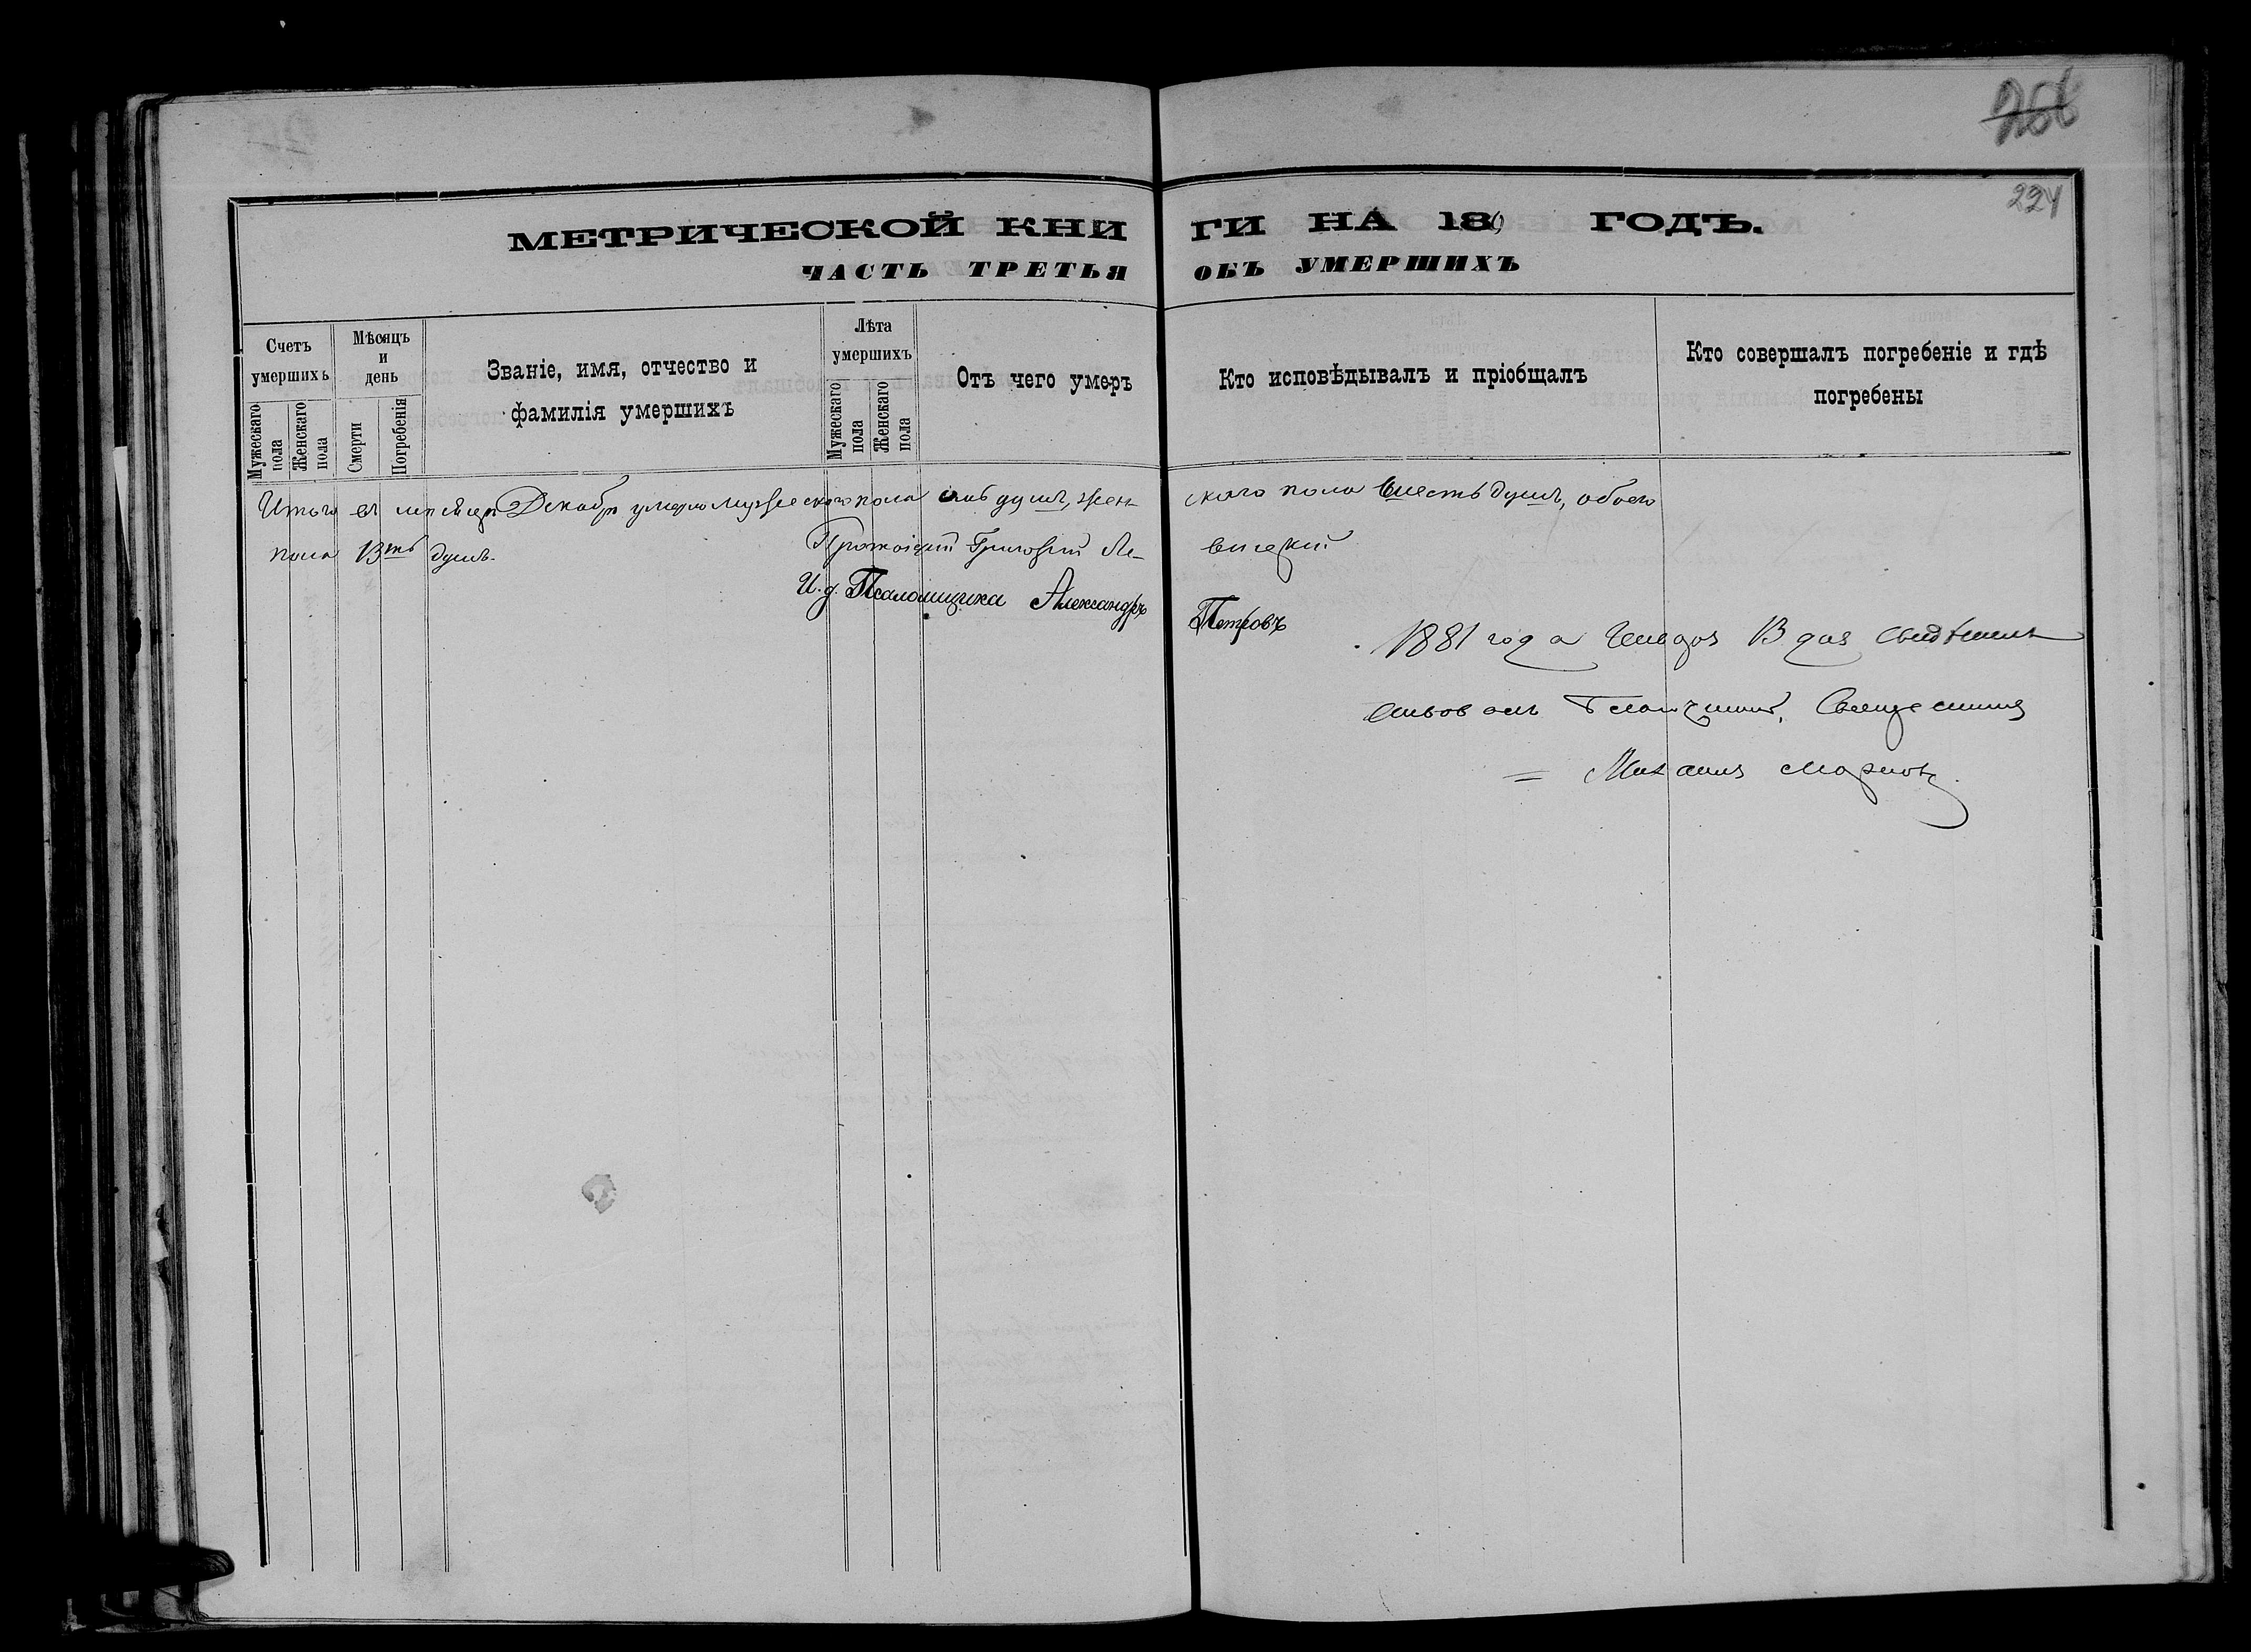 266
224
МЕТРИЧЕСКОЙ КНИГИ НА 18 ГОДЪ.
ЧАСТЬ ТРЕТЬЯ ОБЪ УМЕРШИХЪ
Счетъ умершихъ
Мужескаго пола
Женскаго пола
Мѣсяцъ и день
Смерти
Погребенія
Званіе, имя, отчество и фамилія умершихъ
Лѣта умершихъ
Мужескаго пола
Женскаго пола
Отъ чего умеръ
Кто исповѣдывалъ и пріобщалъ
Кто совершалъ погребеніе и гдѣ погребены
Итого въ мѣсяцѣ Декабрѣ умерло мужескаго пола семь душъ, женскаго пола шесть душъ, обоего
пола 13ть душъ.
Протоіерей Григорій
И. д. Псаломщика Александръ Петровъ
1881 года Генваря 13 дня свидѣтельствовалъ Благочинный, Священникъ
Михаилъ